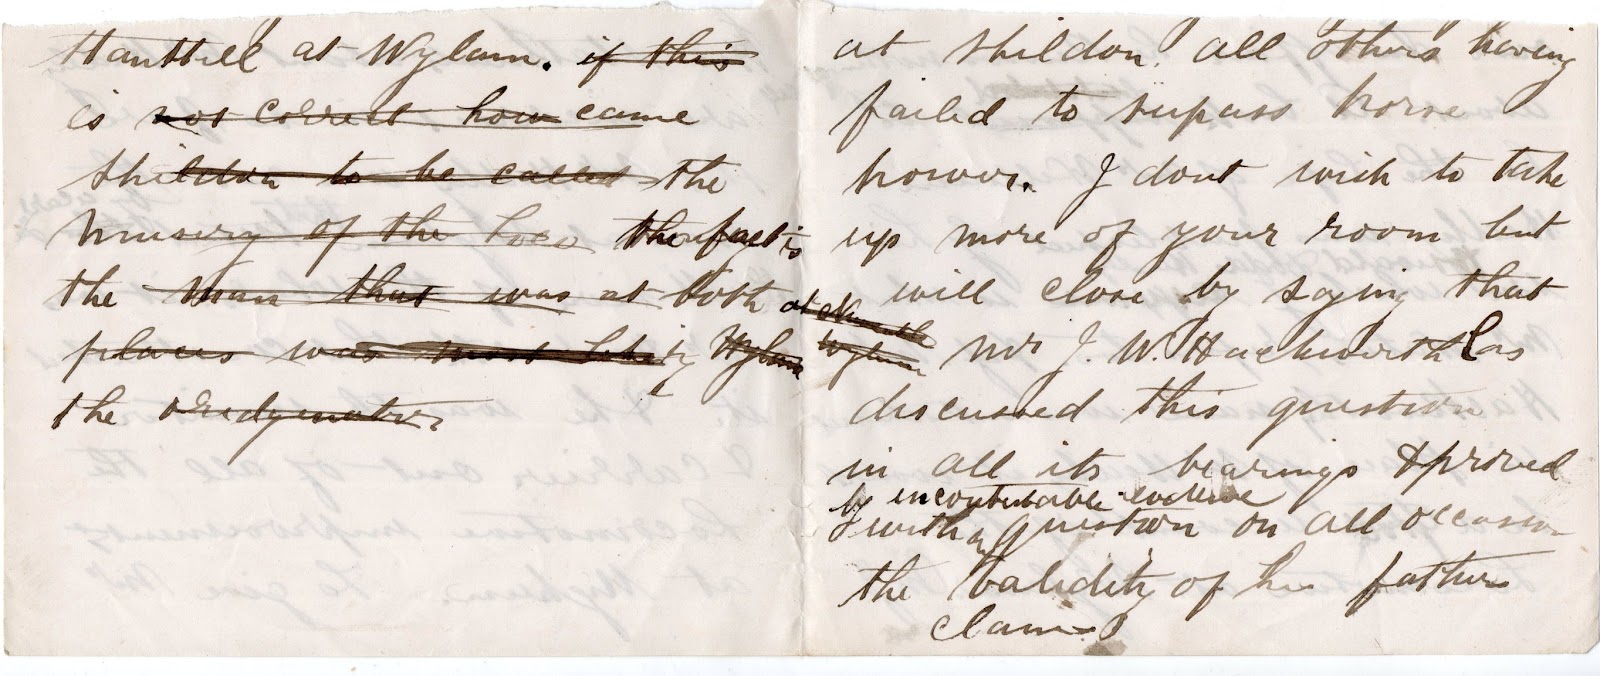 Stanstill at Wylam. if this
is not correct how came
Shildon to be called the
Nursery of the Loco the fact is
the man that was at both at Newcastle
places was most likely Wylam Wylam
the Oridgenator
at Shildon all others having
failed to supass horse
power. I dont wish to take
up more of your room but
will close by saying that
Mr J. W. Hackworth has
discussed this question
in all its bearings & proved
by incontestable evidence
without question on all occasion
the validity of his fathers
Claims